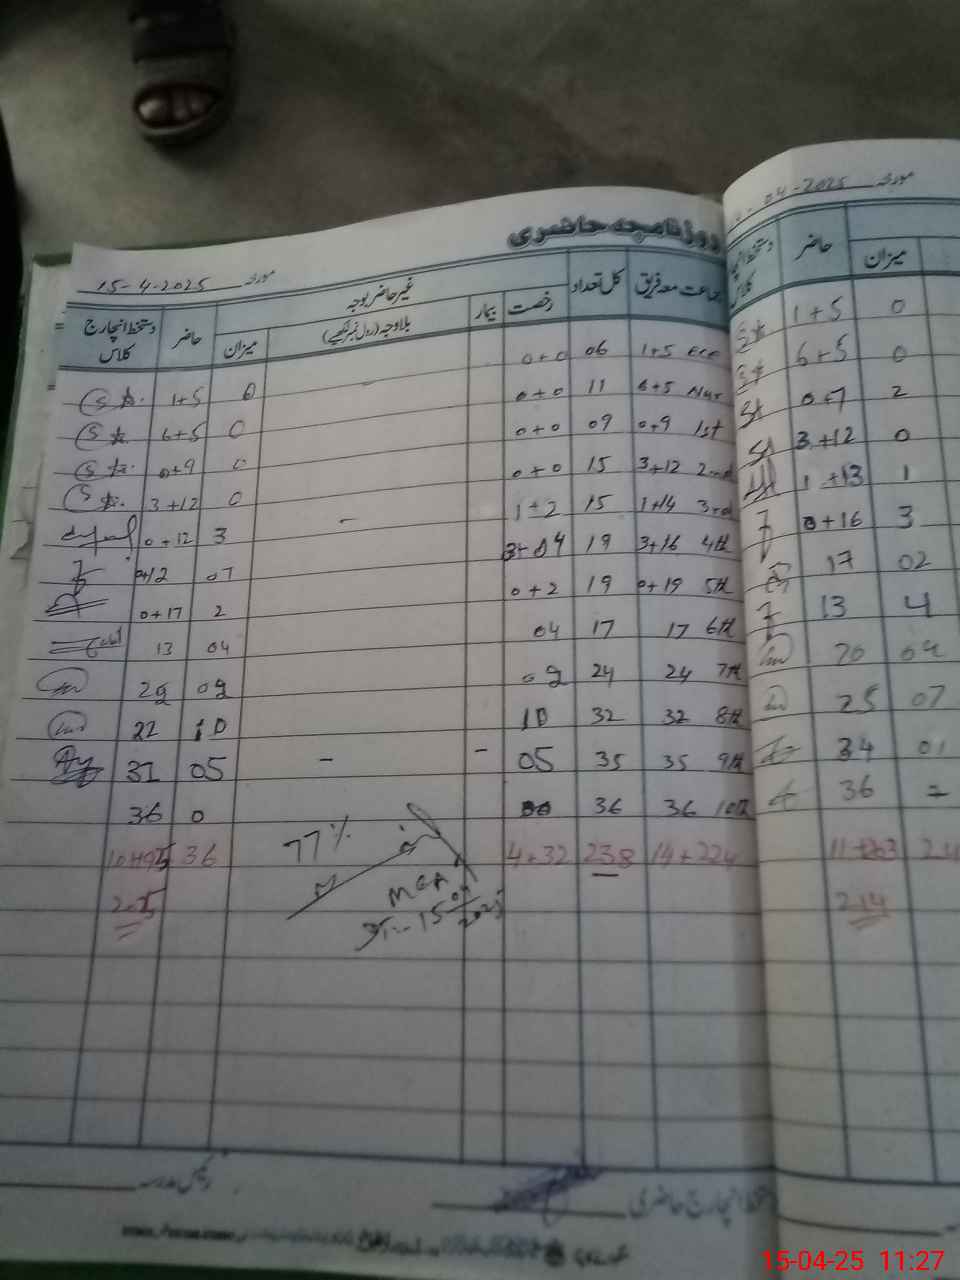 روزنامچہ حاضری
مورخہ 15-4-2025
جماعت معہ فریق کل تعداد غیر حاضر بوجہ حاضر دستخط انچارج کلاس
رخصت بیمار بلاوجہ (رول نمبر لکھیے) میزان
1+5 ECE 06 0+0 0 1+5
6+5 Nur 11 0+0 0 6+5
0+9 1st 09 0+0 0 0+9
3+12 2nd 15 0+0 0 3+12
1+14 3rd 15 1+2 - 3 0+12
3+16 4th 19 3+04 07 0+12
0+19 5th 19 0+2 2 0+17
17 6th 17 04 04 13
24 7th 24
32 8th 32 10 10 22
35 9th 35 05 - - 05 31
36 10th 36 0 36
14+224 238 4+32 77% 36
205
MEA
Dt:- 15/04/2025
دستخط انچارج حاضری
رئیس مدرسہ
04-2025 مورخہ
میزان حاضر دستخط انچارج کلاس
0 1+5
0 6+5
2 0+7
0 3+12
1 1+13
3 0+16
02 17
4 13
04 20
07 25
01 34
36
214
15-04-25 11:27